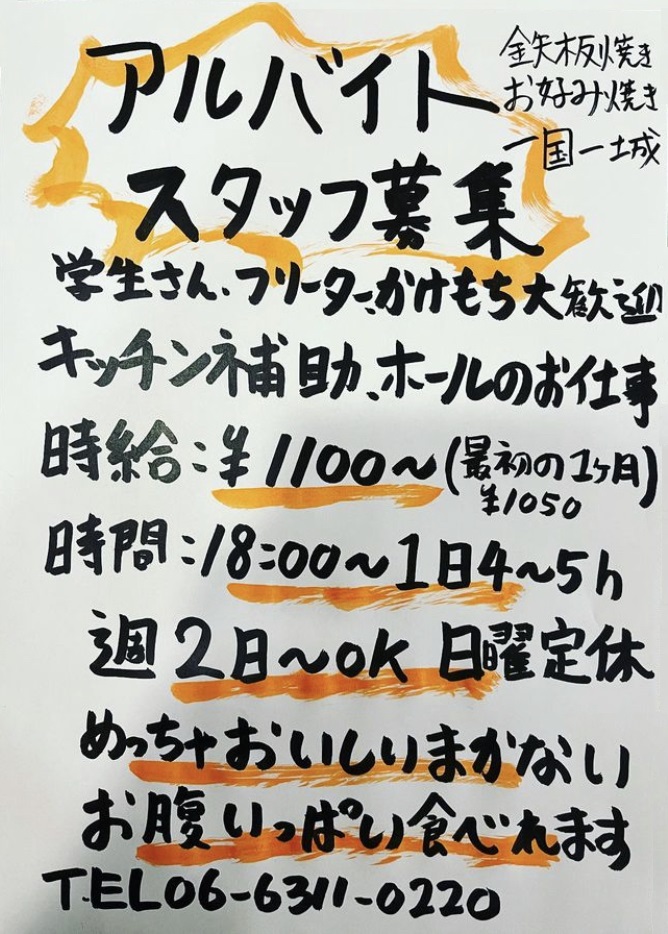 鉄板焼き
お好み焼き
一国一城
アルバイト
スタッフ募集
学生さん、フリーター、かけもち大歓迎
キッチン補助、ホールのお仕事
時給:¥1100〜(最初の1ヶ月)
¥1050
時間:18:00〜1日4〜5h
週2日〜OK 日曜定休
めっちゃおいしいまかない
お腹いっぱい食べれます
T.EL06-6311-0220